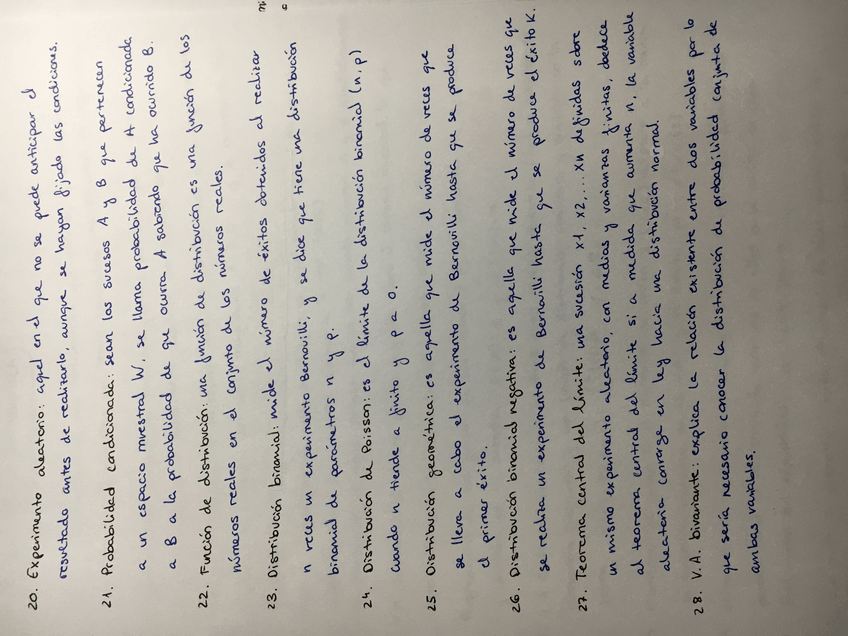 20. Experimento aleatorio: aquel en el que no se puede anticipar el
resultado antes de realizarlo, aunque se hayan fijado las condiciones.
21. Probabilidad condicionada: sean los sucesos A y B que pertenecen
a un espacio muestral W, se llama probabilidad de A condicionada
a B a la probabilidad de que ocurra A sabiendo que ha ocurrido B.
22. Función de distribución: una función de distribución es una función de los
números reales en el conjunto de los números reales.
23. Distribución binomial: mide el número de éxitos obtenidos al realizar
n veces un experimento Bernouilli, y se dice que tiene una distribución
binomial de parámetros n y p.
24. Distribución de Poisson: es el límite de la distribución binomial (n, p)
cuando n tiende a finito y p a 0.
25. Distribución geométrica: es aquella que mide el número de veces que
se lleva a cabo el experimento de Bernouilli hasta que se produce
el primer éxito.
26. Distribución binomial negativa: es aquella que mide el número de veces que
se realiza un experimento de Bernouilli hasta que se produce el éxito K.
27. Teorema central del límite: una sucesión x1, x2, ... xn definidas sobre
un mismo experimento aleatorio, con medias y varianzas finitas, obedece
al teorema central del límite si a medida que aumenta n, la variable
aleatoria converge en ley hacia una distribución normal.
28. V.A. bivariante: explica la relación existente entre dos variables por lo
que sería necesario conocer la distribución de probabilidad conjunta de
ambas variables.